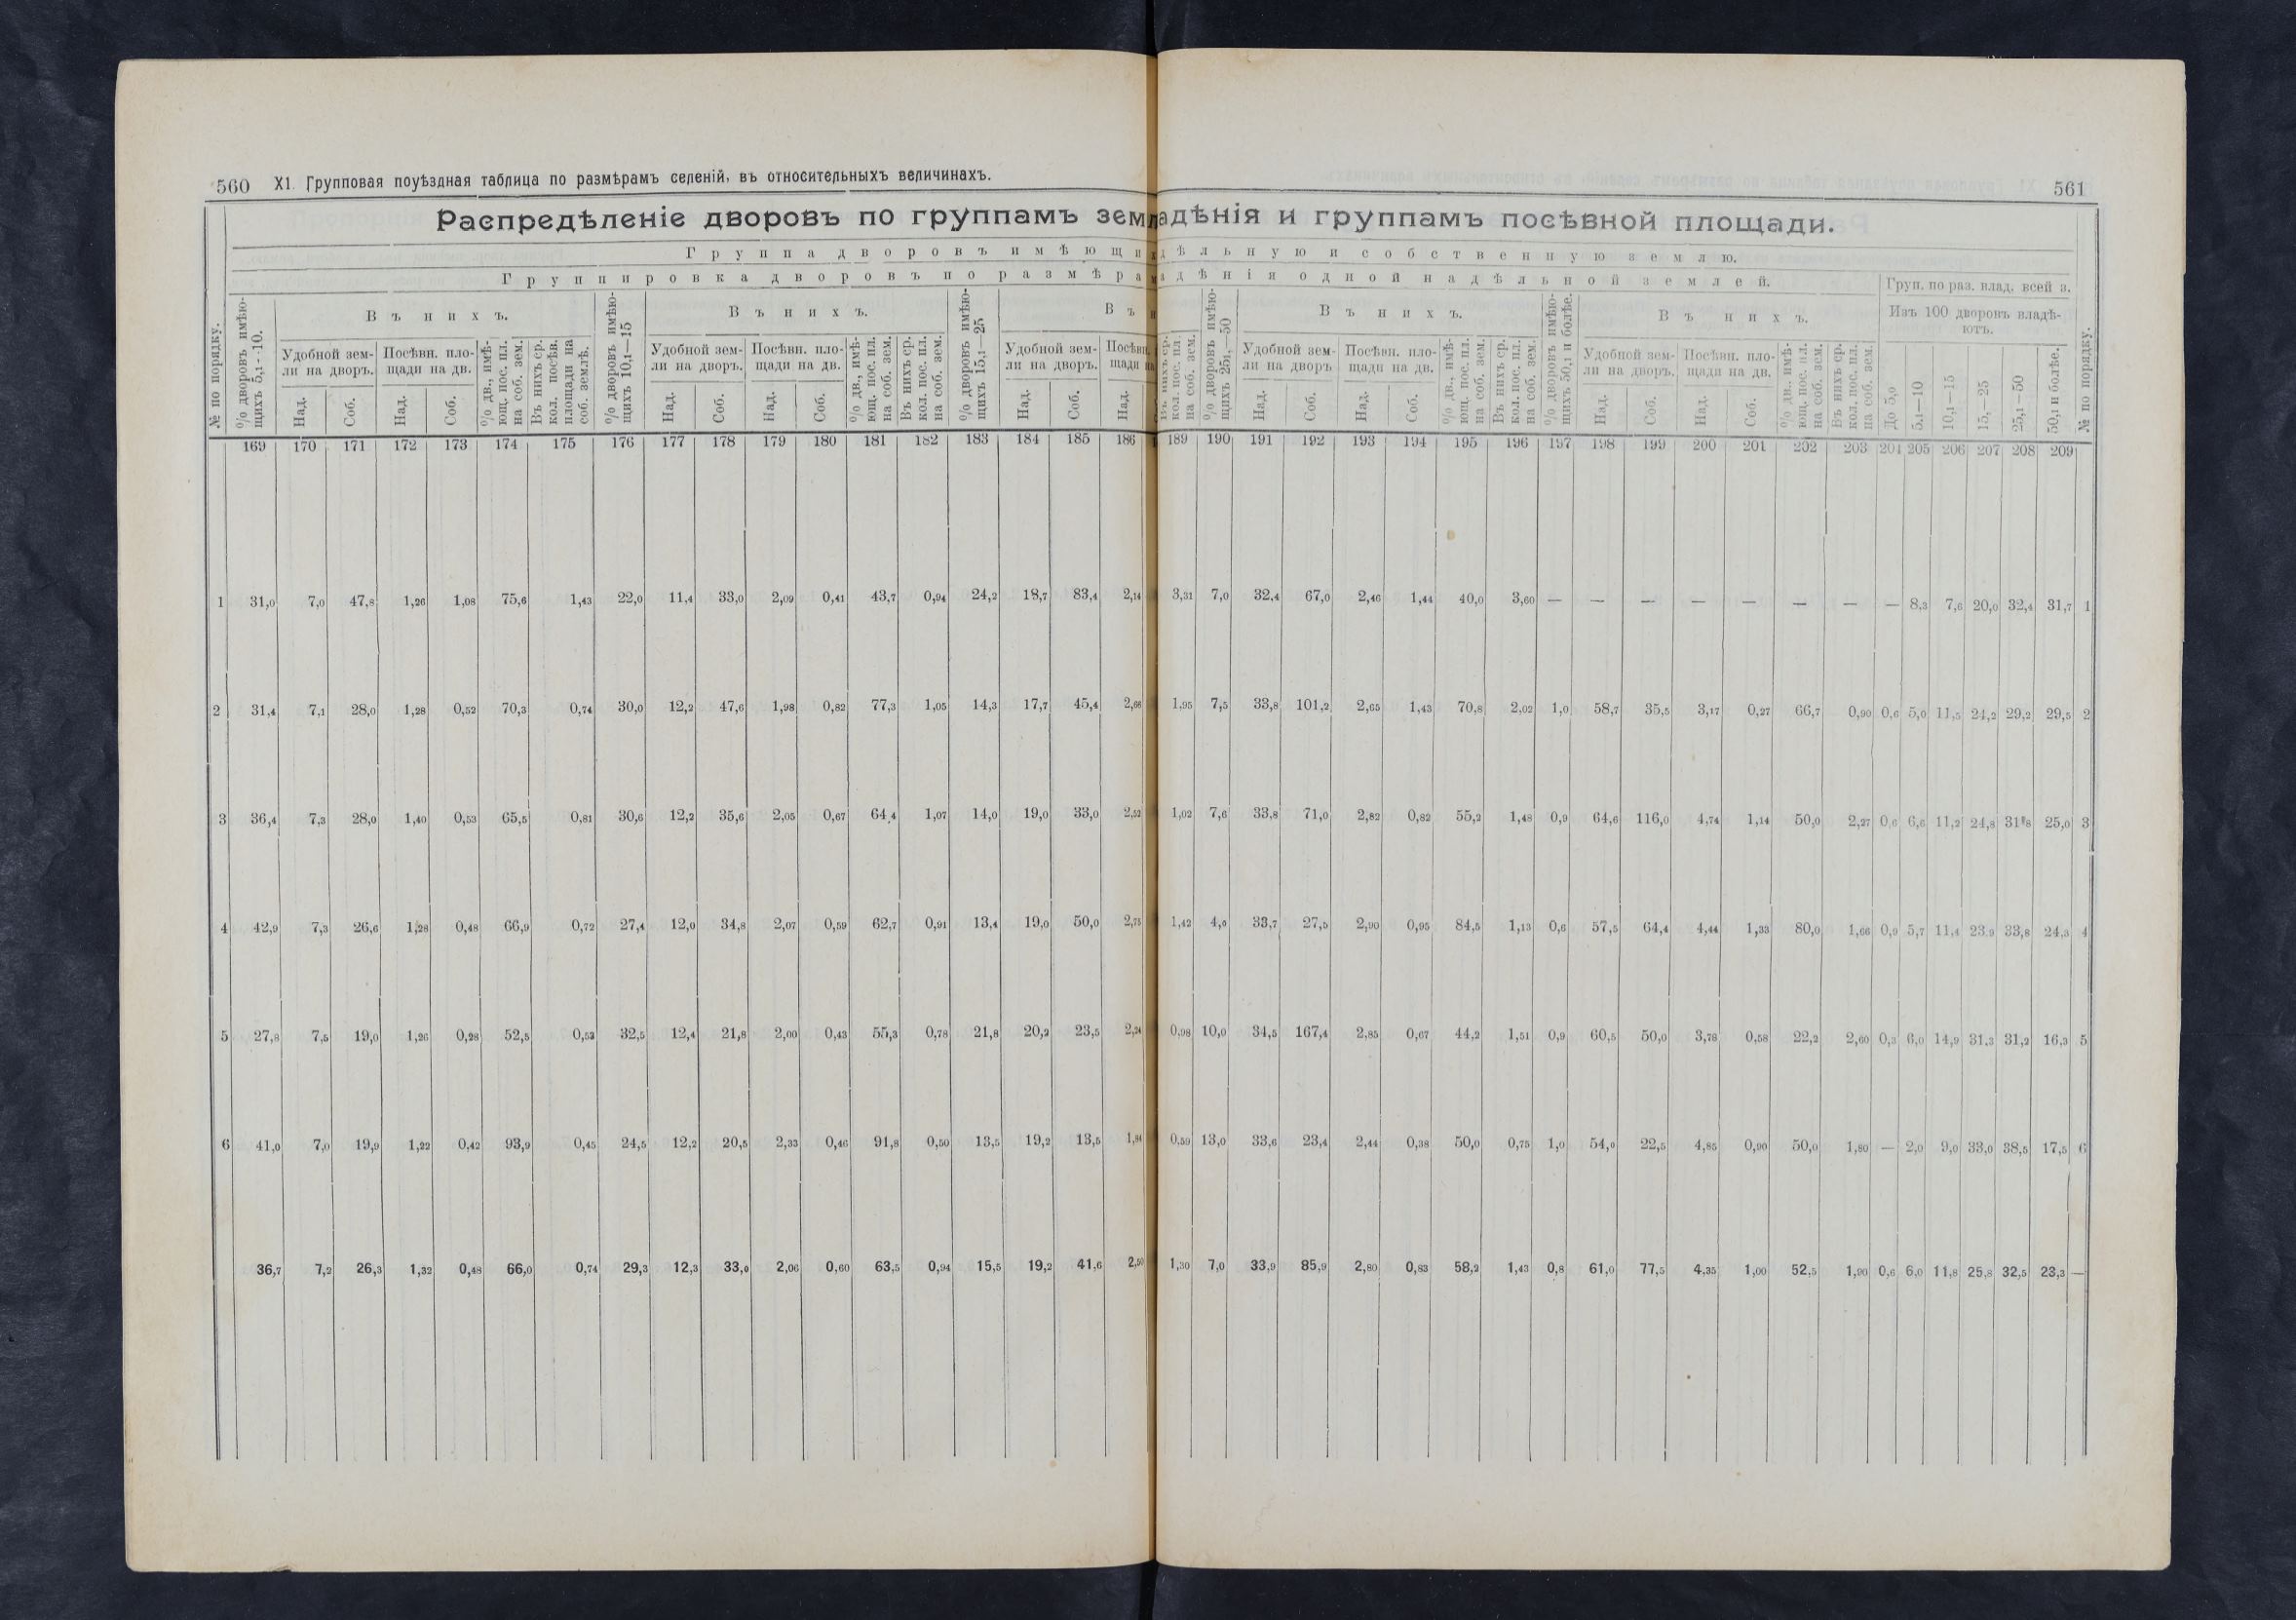 560 XI. Групповая поуѣздная таблица по размѣрамъ селеній, въ относительныхъ величинахъ.
561
Распредѣленіе дворовъ по группамъ земл адѣнія и группамъ посѣвной площади.
Группа дворовъ имѣющи дѣльную и собственную землю.
Группировка дворовъ по размѣра адѣнія одной надѣльной землей.
Груп. по раз. влад. всей з.
№ по порядку.
% дворовъ имѣющихъ 5,1-10.
Въ нихъ.
Удобной земли на дворъ.
Посѣвн. площади на дв.
Над. Соб. Над. Соб.
% дв., имѣющ. пос. пл. на соб. зем.
Въ нихъ ср. кол. посѣв. площади на соб. землѣ.
% дворовъ имѣющихъ 10,1—15
Въ нихъ.
Удобной земли на дворъ.
Посѣвн. площади на дв.
Над. Соб. Над. Соб.
% дв., имѣющ. пос. пл. на соб. зем.
Въ нихъ ср. кол. пос. пл. на соб. зем.
% дворовъ имѣющихъ 15,1—25
Въ
Удобной земли на дворъ.
Посѣвн. щади
Над. Соб. Над.
Въ нихъ ср. кол. пос. пл. на соб. зем.
% дворовъ имѣющихъ 25,1—50
Въ нихъ.
Удобной земли на дворъ
Посѣвн. площади на дв.
Над. Соб. Над. Соб.
% дв., имѣющ. пос. пл. на соб. зем.
Въ нихъ ср. кол. пос. пл. на соб. зем.
% дворовъ имѣющихъ 50,1 и болѣе.
Въ нихъ.
Удобной земли на дворъ.
Посѣвн. площади на дв.
Над. Соб. Над. Соб.
% дв., имѣющ. пос. пл. на соб. зем.
Въ нихъ ср. кол. пос. пл. на соб. зем.
Изъ 100 дворовъ владѣютъ.
До 5,0 5,1—10 10,1—15 15,—25 25,1—50 50,1 и болѣе.
№ по порядку.
169 170 171 172 173 174 175 176 177 178 179 180 181 182 183 184 185 186 189 190 191 192 193 194 195 196 197 198 199 200 201 202 203 204 205 206 207 208 209
1 31,0 7,0 47,8 1,26 1,08 75,6 1,43 22,0 11,4 33,0 2,09 0,41 43,7 0,94 24,2 18,7 83,4 2,14 3,31 7,0 32,4 67,0 2,46 1,44 40,0 3,60 — — — — — — — — 8,3 7,6 20,0 32,4 31,7 1
2 31,4 7,1 28,0 1,28 0,52 70,3 0,74 30,0 12,2 47,6 1,98 0,82 77,3 1,05 14,3 17,7 45,4 2,66 1,95 7,5 33,8 101,2 2,65 1,43 70,8 2,02 1,0 58,7 35,5 3,17 0,27 66,7 0,90 0,6 5,0 11,5 24,2 29,2 29,5 2
3 36,4 7,3 28,0 1,40 0,53 65,5 0,81 30,6 12,2 35,6 2,05 0,67 64,4 1,07 14,0 19,0 33,0 2,52 1,02 7,6 33,8 71,0 2,82 0,82 55,2 1,48 0,9 64,6 116,0 4,74 1,14 50,0 2,27 0,6 6,6 11,2 24,8 31,8 25,0 3
4 42,9 7,3 26,6 1,28 0,48 66,9 0,72 27,4 12,0 34,8 2,07 0,59 62,7 0,91 13,4 19,0 50,0 2,75 1,42 4,0 33,7 27,5 2,90 0,95 84,5 1,13 0,6 57,5 64,4 4,44 1,33 80,0 1,66 0,9 5,7 11,4 23,9 33,8 24,3 4
5 27,8 7,5 19,0 1,26 0,28 52,5 0,53 32,5 12,4 21,8 2,00 0,43 55,3 0,78 21,8 20,2 23,5 2,24 0,98 10,0 34,5 167,4 2,85 0,67 44,2 1,51 0,9 60,5 50,0 3,78 0,58 22,2 2,60 0,3 6,0 14,9 31,3 31,2 16,3 5
6 41,0 7,0 19,9 1,22 0,42 93,9 0,45 24,5 12,2 20,5 2,33 0,46 91,8 0,50 13,5 19,2 13,5 1,84 0,59 13,0 33,6 23,4 2,44 0,38 50,0 0,75 1,0 54,0 22,5 4,85 0,90 50,0 1,80 — 2,0 9,0 33,0 38,5 17,5 6
36,7 7,2 26,3 1,32 0,48 66,0 0,74 29,3 12,3 33,0 2,06 0,60 63,5 0,94 15,5 19,2 41,6 2,50 1,30 7,0 33,9 85,9 2,80 0,83 58,2 1,43 0,8 61,0 77,5 4,35 1,00 52,5 1,96 0,6 6,0 11,8 25,8 32,5 23,3 —